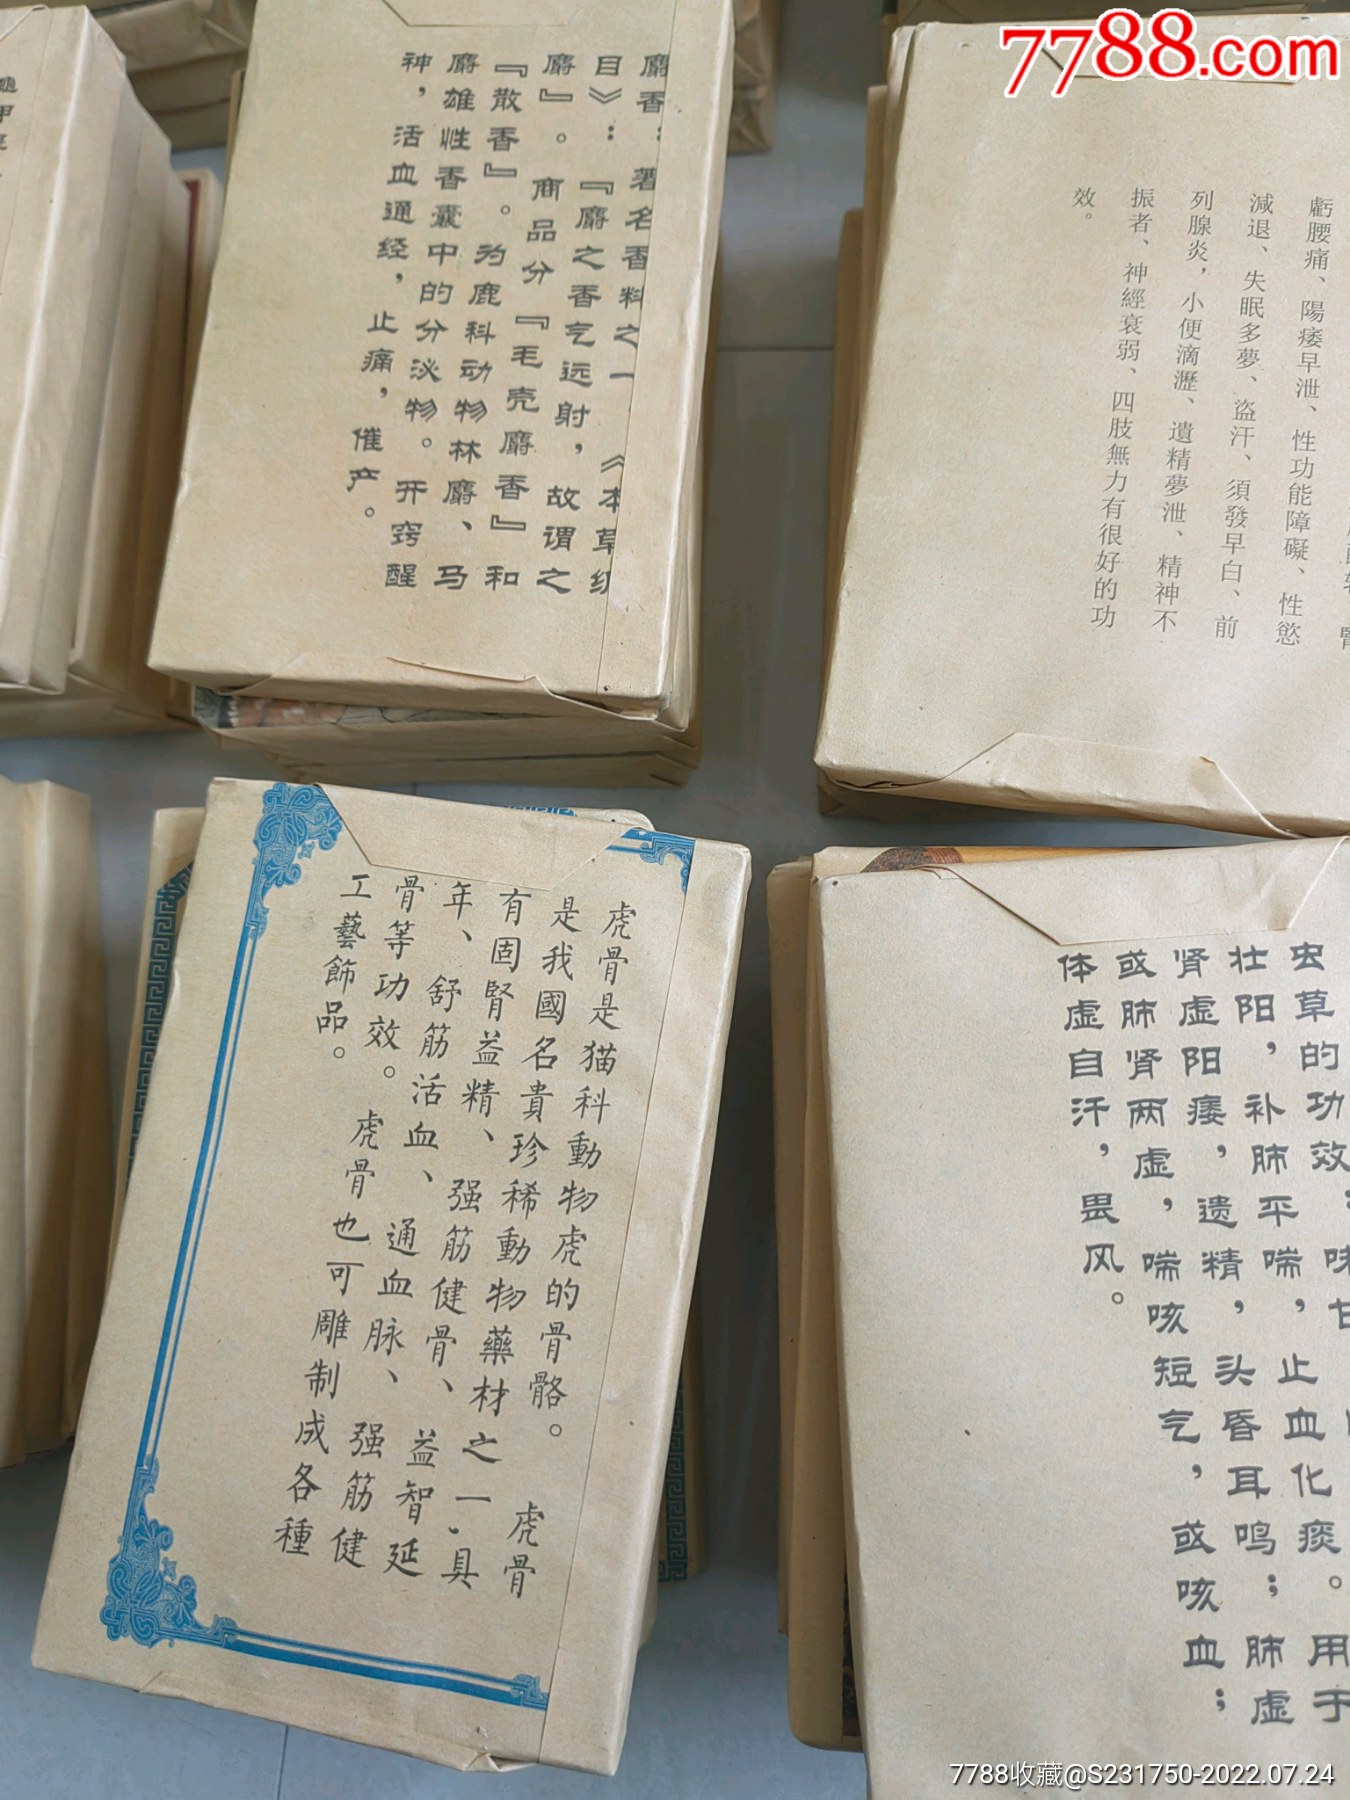 7788.com
麝香：著名香料之一《本草纲
目》：『麝之香气远射，故谓之
麝』。商品分『毛壳麝香』和
『散香』。为鹿科动物林麝、马
麝雄性香囊中的分泌物。开窍醒
神，活血通经，止痛，催产。
虧腰痛、陽痿早泄、性功能障礙、性慾
減退、失眠多夢、盜汗、須發早白、前
列腺炎，小便滴瀝、遺精夢泄、精神不
振者、神經衰弱、四肢無力有很好的功
效。
虎骨是猫科動物虎的骨骼。虎骨
是我國名貴珍稀動物藥材之一.具
有固腎益精、强筋健骨、益智延
年、舒筋活血、通血脉、强筋健
骨等功效。虎骨也可雕制成各種
工藝飾品。
虫草的功效
壮阳，补肺平喘，止血化痰。用于
肾虚阳痿，遗精，头昏耳鸣；肺虚
或肺肾两虚，喘咳短气，或咳血；
体虚自汗，畏风。
7788收藏@S231750-2022.07.24